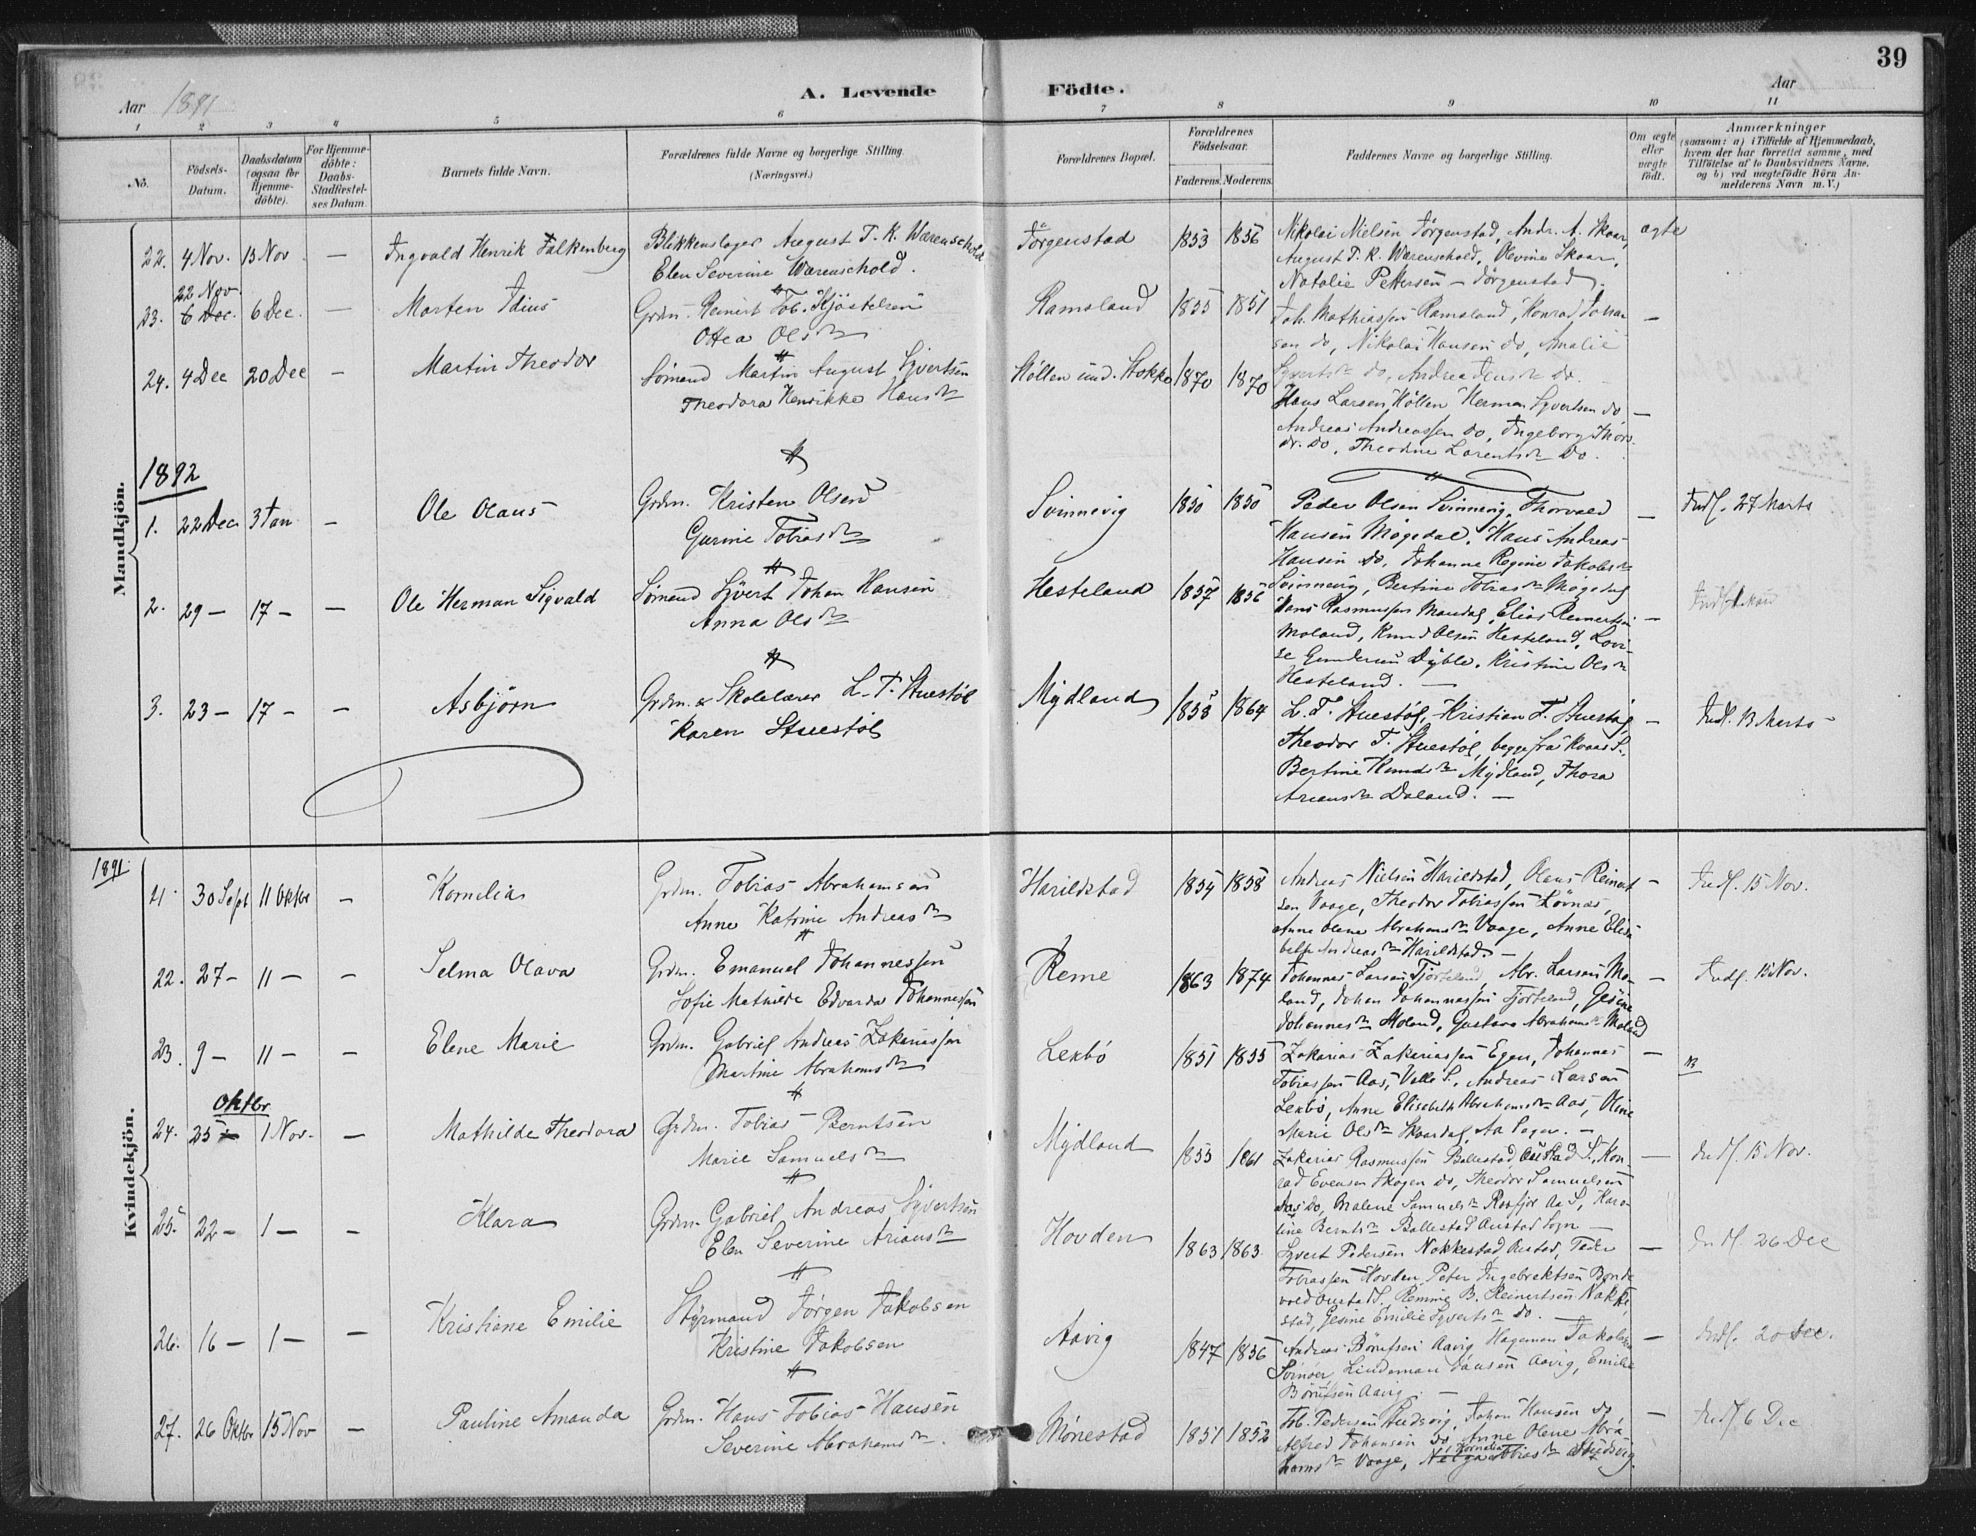 39
Aar 1891 A. Levende Födte. Aar
1 2 3 4 5 6 7 8 9 10 11
No.
Födsels-Datum.
Daabsdatum (ogsaa for Hjemme-döbte).
For Hjemme-döbte: Daabs-Stadfæstel-ses Datum
Barnets fulde Navn.
Forældrenes fulde Navne og borgerlige Stilling. (Næringsvei.)
Forældrenes Bopæl.
Forældrenes Födselsaar.
Faderens. Moderens.
Faddernes Navne og borgerlige Stilling.
Om ægte eller uægte födt.
Anmærkninger
(saasom: a) i Tilfælde af Hjemmedaab, hvem der har forrettet samme, med Tilföielse af to Daabsvidners Navne, og b) ved uægtefödte Börn An-melderens Navn m. V.)
Mandkjön.
22. 4 Nov. 15 Nov — Ingvald Henrik Falkenberg
Blikkenslager August T. K. Warenschold
Elen Severine Warenschold.
Jörgenstad 1853 1856
Nikolai Nielsen Jörgenstad, Andr. A. Skaar,
August T. K. Warenschold, Olevine Skaar,
Natalie Pettersen — Jörgenstad
ægte
22 Nov
23. 6 Dec. 6 Dec. — Morten Idius
Grdm. Reinert Tob. Kjöstelsen
Othea Olsdr
Ramsland 1855 1851
Joh. Mathiassen Ramsland, Konrad Johan
sen do, Nikolai Hansen do, Amalie
—
24. 4 Dec 20 Dec — Martin Theodor
Sömand Martin August Syvertsen
Theodora Henrikke Hansdr
1870 1870
Hans Larsen Höllen Herman Syvertsen do —
Andreas Andreassen do, Ingeborg Thors
dr. do, Theodine Lorentsdr do.
1892
1. 22 Dec 3 Jan — Ole Olaus
Grdm. Kristen Olsen
Gurine Tobiasdr
Svinnevig 1850 1850
Peder Olsen Svinnevig, Thorvald
Hansen Mögedal, Hans Andreas
Hansen do, Johanne Regine Jakobsdr
Svinnevig, Bertine Tobiasdr Mögedal
— Indf. 27 Marts
2. 29 — 17 — — Ole Herman Sigvald
Sömand Syvert Johan Hansen
Anna Olsdr
Hesteland 1857 1856
Hans Rasmussen Mandal, Elias Reinertsen
Moland, Knud Olsen Hesteland, Lovi
se Gundersen Dyble, Kristine Olsdr
Hesteland. —
3. 23 — 17 — — Asbjörn
Grdm. & Skolelærer L. T. Stuestöl
Karen Stuestöl
Mydland 1858 1864
L. T. Stuestöl, Kristian T. Stuestöl,
Theodor T. Stuestöl, begge fra Kvaas S.,
Bertine Knudsdr Mydland, Thora
Ariansdr Daland. —
— Indf. 13 Marts
1891
Kvindekjön.
21. 30 Sept 11 Oktbr — Kornelia
Grdm. Tobias Abrahamsen
Anne Katrine Andreasdr
Harildstad 1854 1858
Andreas Nielsen Harildstad, Olaus Reinert
sen Vaage, Theodor Tobiassen Lövnes,
Anne Olene Abrahamsdr Vaage, Anne Elisa
beth Andreasdr Harildstad —
— Indf. 15 Nov.
22. 27 — 11 — — Selma Olava
Grdm. Emanuel Johannessen
Sofie Mathilde Edvarda Johannessen
Reme 1863 1874
Johannes Larsen Fjorteland, Abr. Larsen Mo-
land, Johan Johannessen Fjorteland, Gesine
Johannesdr Moland, Gustava Abrahamsdr Moland
— Indf. 15 Nov.
23. 9 — 11 — — Elene Marie
Grdm. Gabriel Andreas Zakariassen
Martine Abrahamsdr
Lexbö 1851 1855
Zakarias Zakariassen Egen, Johannes
Tobiassen Aas, Valle S., Andreas Larsen
Lexbö, Anne Elisabeth Abrahamsdr Aas, Oline
Marie Olsdr Skoardal, Aa Sogn. —
—
Oktbr
24. 25 — 1 Nov. — Mathilde Theodora
Grdm. Tobias Berntsen
Marie Samuelsdr
Mydland 1855 1861
Zakarias Rasmussen Ballestad, Ourstad S., Kon-
rad Evensen Skogen do, Theodor Samuelsen
Aas do, Malene Samuelsdr Rosfjor Aa S, Karo
line Berntsdr Ballestad Austad Sogn —
— Indf. 15 Nov.
25. 22 — 1 — — Klara
Grdm. Gabriel Andreas Syvertsen
Elen Severine Ariansdr
Hovden 1863 1863
Syvert Pedersen Nokkestad Austad, Peder
Tobiassen Hovden, Peter Ingebrektsen Bonde
vold Oustad S. Remine B. Reinertsen Nokke
stad, Gesine Emilie Syvertsdr do. —
— Indf 26 Dec
26. 16 — 1 — — Kristiane Emilie
Styrmand Jörgen Jakobsen
Kristine Jakobsen
Aavig 1847 1856
Andreas Börufsen Aavig Hageman Jakobsen
Lindeman Jansen Aavig, Emilie
Börufsen Aavig. —
— Indf. 20 Dec.
27. 26 Oktbr 15 Nov — Pauline Amanda
Grdm. Hans Tobias Hansen
Severine Abrahamsdr.
Mönestad 1851 1852
Tob. Pedersen Budsvig, Johan Hansen do
Alfred Johansen do, Anne Olene Abra
hamsdr Vaage, Kornelia Tobiasdr
— Indf. 6 Dec